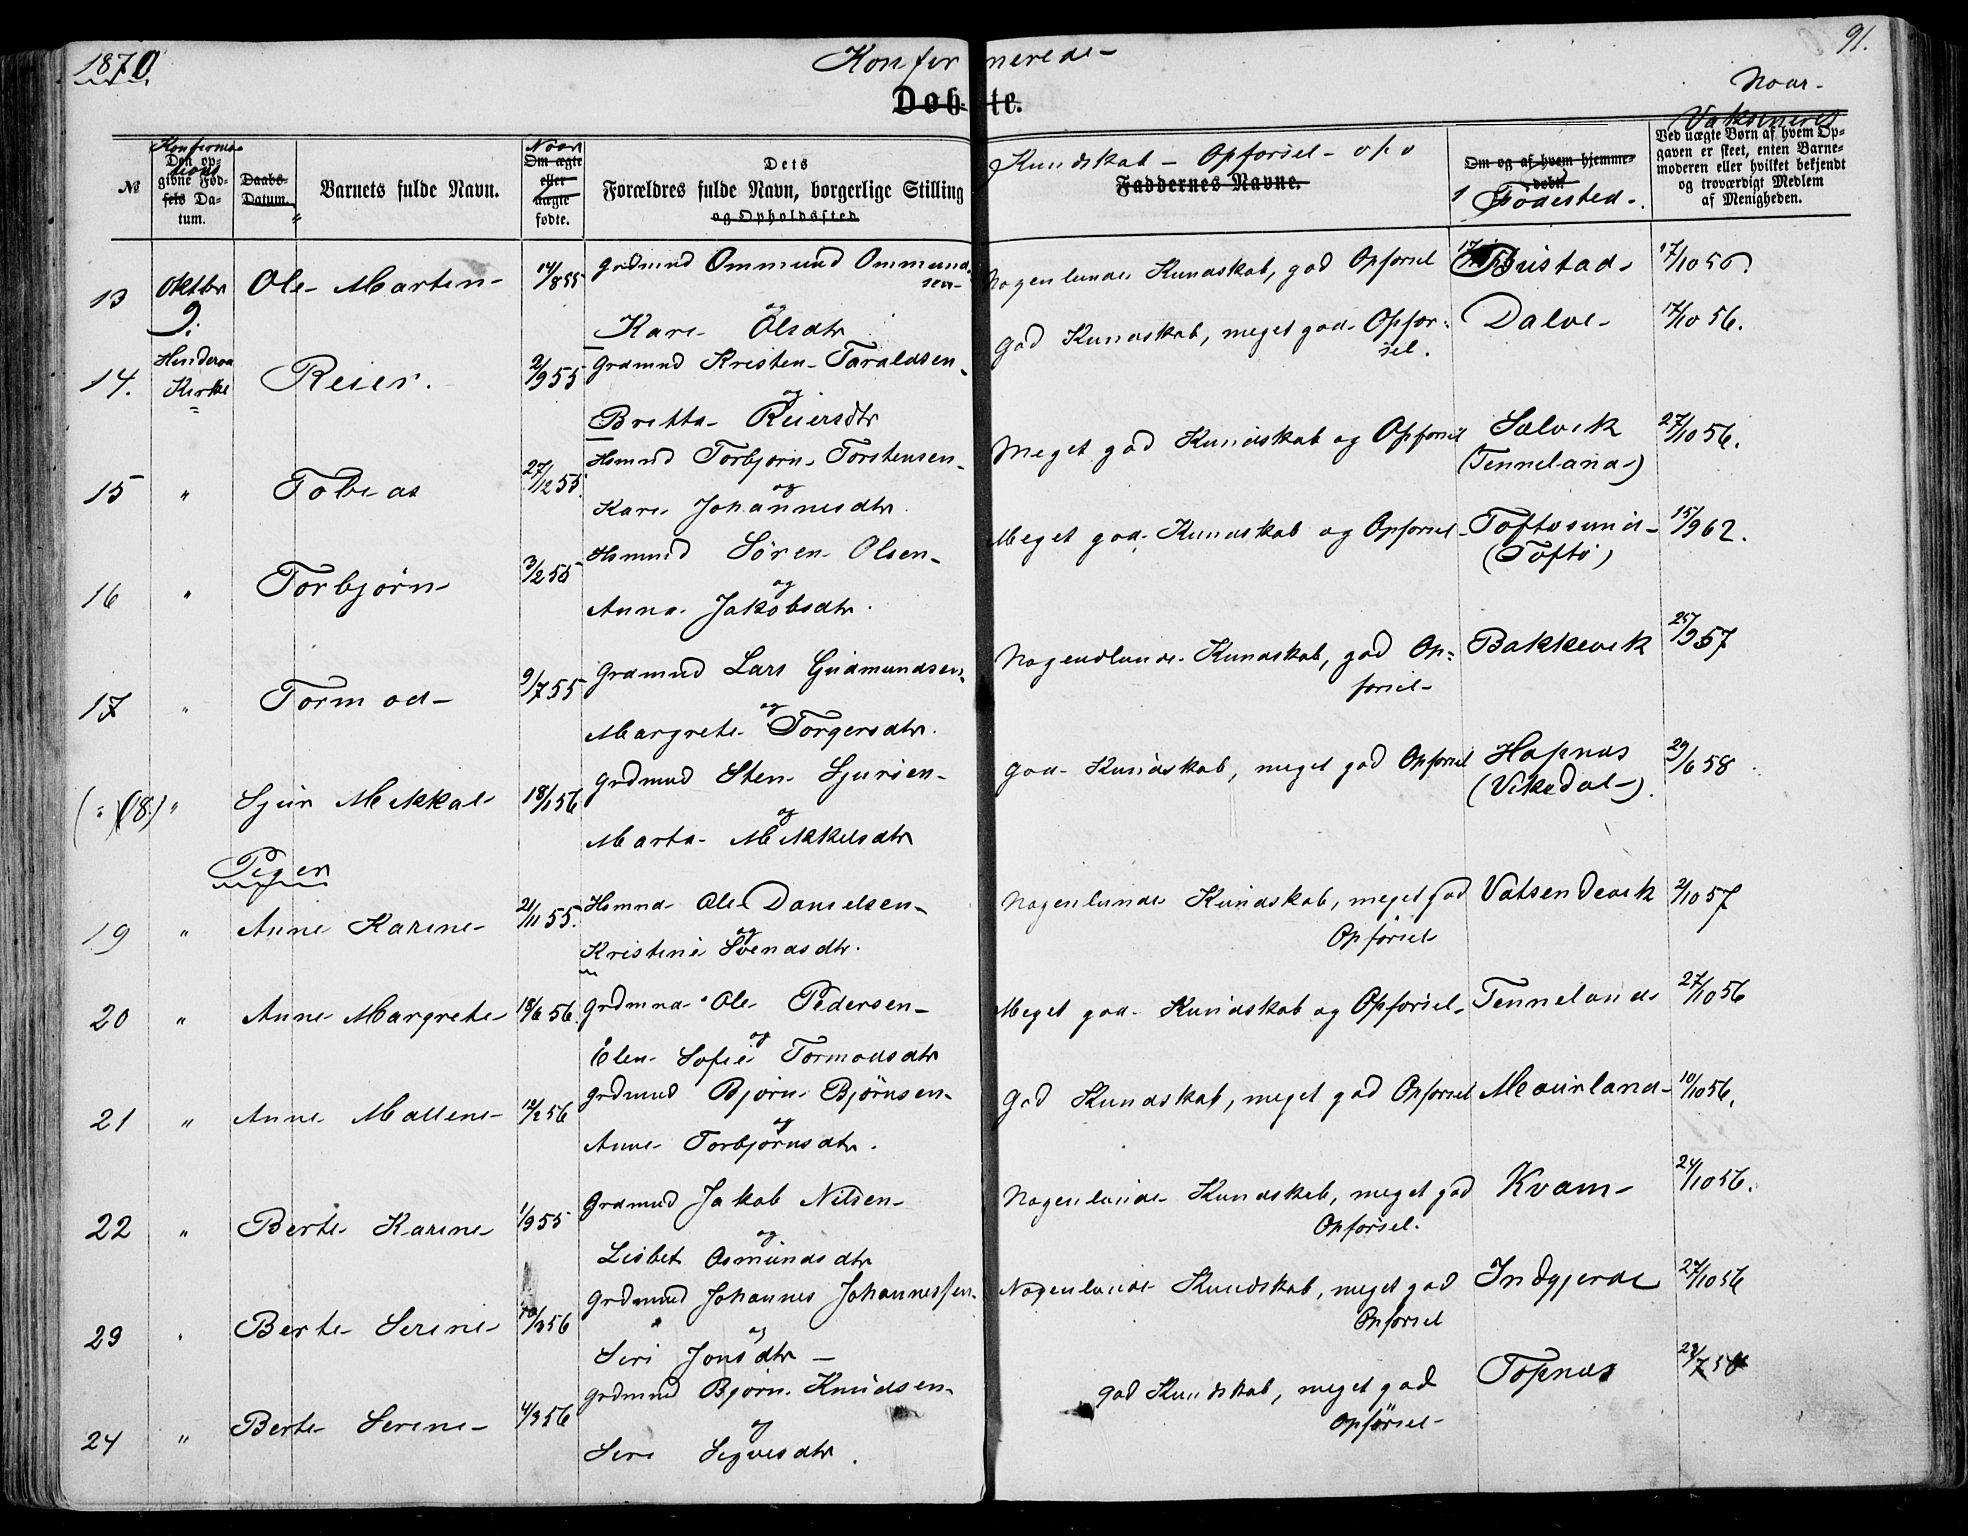 1870.
Konfirmerede
91.
Døbte.
Naar
Vakcineret
Konfirmations
№
Den opgivne Fødsels Datum.
Daabs-Datum.
Barnets fulde Navn.
Naar
Om ægte eller uægte fødte.
Dets Forældres fulde Navn, borgerlige Stilling og Opholdssted
Kundskab - Opførsel - o s v
Faddernes Navne.
Om og af hvem hjemmedøbt.
Fødested
Ved uægte Børn af hvem Opgaven er skeet, enten Barnemoderen eller hvilket bekjendt og troværdigt Medlem af Menigheden.
13 Oktbr 9. Ole Martin 14/8 55 Grdmnd Ommund Ommundsen
og
Kari Olsdtr
Nogenlunde Kundskab, god Opførsel Bustad 17/10 56
14. Kirke Reier. 2/9 55 Grdmnd Kristen Taraldsen
og
Britta Reiersdtr
God Kundskab, meget god Opførsel. Dalve 17/10 56.
15 " Tobias 27/12 55 Hsmnd Torbjørn Torstensen
og
Kari Johannesdtr.
Meget god Kundskab og Opførsel Sælvik (Tenneland) 27/10 56.
16 " Torbjørn 3/2 56 Hsmnd Søren Olsen
og
Anna Jakobsdtr.
Meget god Kundskab og Opførsel Toftøsund (Toftø) 15/9 62.
17 " Tormod 9/7 55 Grdmnd Lars Gudmundsen
og
Margrete Torgersdtr.
Nogenlunde Kundskab, god Opførsel Bakkevik 25/9 57
18 " Sjur Mikkal 18/1 56 Grdmnd Sten Sjursen
og
Marta Mikkelsdtr
God Kundskab, meget god Opførsel Hapnas (Vikedal). 29/6 58
Piger
19 " Anne Karine 21/11 55. Hsmnd Ole Danielsen
og
Kristine Svendsdtr.
Nogenlunde Kundskab, meget god Opførsel Vatsendvik 2/10 57
20 " Anne Margrete 18/6 56. Grdmnd Ole Pedersen
og
Elen Sofie Tormodsdtr
Meget god Kundskab og Opførsel Tenneland 27/10 56
21 " Anne Mallene 12/2 56 Grdmnd Bjørn Bjørnsen
og
Anne Torbjørnsdtr.
God Kundskab, meget god Opførsel Mourland 10/10 56.
22 " Berte Karine 1/9 55 Grdmnd Jakob Nilsen
og
Lisbet Osmundsdtr
Nogenlunde Kundskab, meget god Opførsel. Kvam 24/10 56.
23 " Berte Serine 10/3 56 Grdmnd Johannes Johannessen
og
Siri Jonsdtr
Nogenlunde Kundskab, meget god Opførsel Indgjerde 27/10 56
24 " Berte Serine 4/3 56 Grdmnd Bjørn Knudsen
og
Siri Sigvesdtr.
God Kundskab, meget god Opførsel Topnas